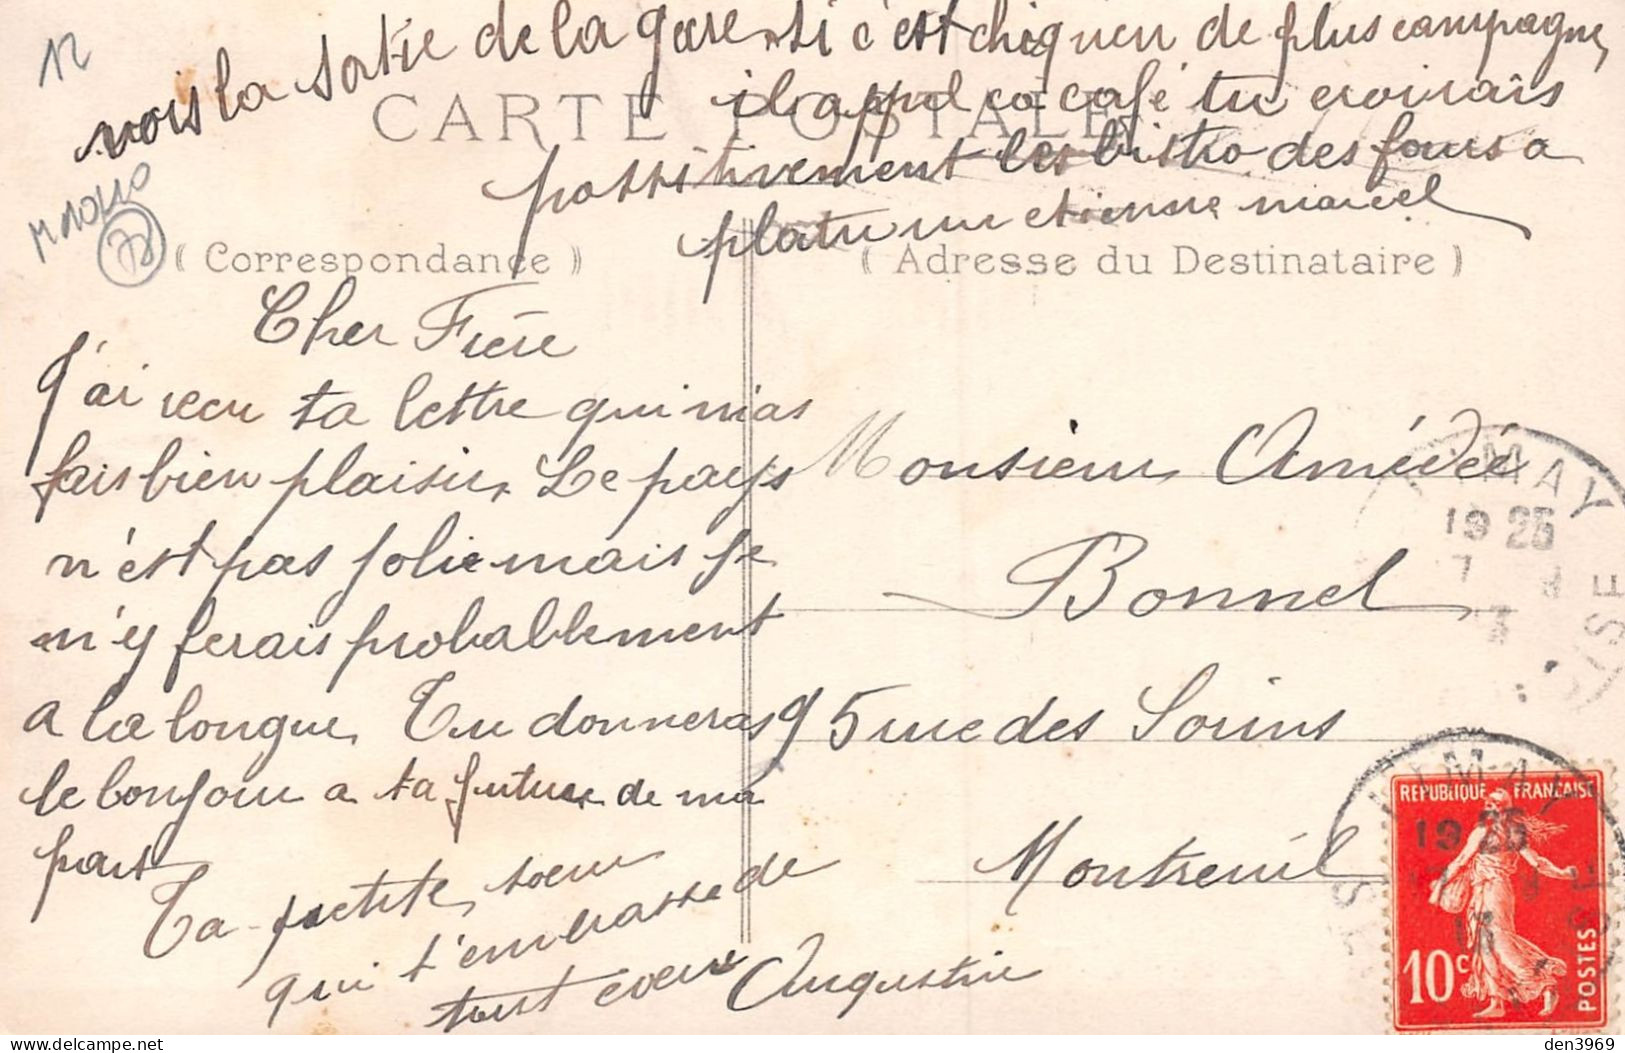 12
vois la sortie de la gare si c'est chiquen de plus campagne,
il appel ca café tu croirais
possitivement les bistro des fours a
platre um etienne marcel
CARTE POSTALE
( Correspondance )
( Adresse du Destinataire )
Cher Frère
J'ai recu ta lettre qui m'as
fais bien plaisir. Le pays
n'est pas jolie mais je
m'y ferais probablement
a la longue. Tu donneras
le bonjour a ta future de ma
part
Ta petite soeur
qui t'embrasse de
tout coeur Augustine
Monsieur Amédée
Bonnel
95 rue des Sorins
Montreuil
LIMAY
19 25
7
13
S.-&-OISE
REPUBLIQUE FRANÇAISE
10c
POSTES
den3969